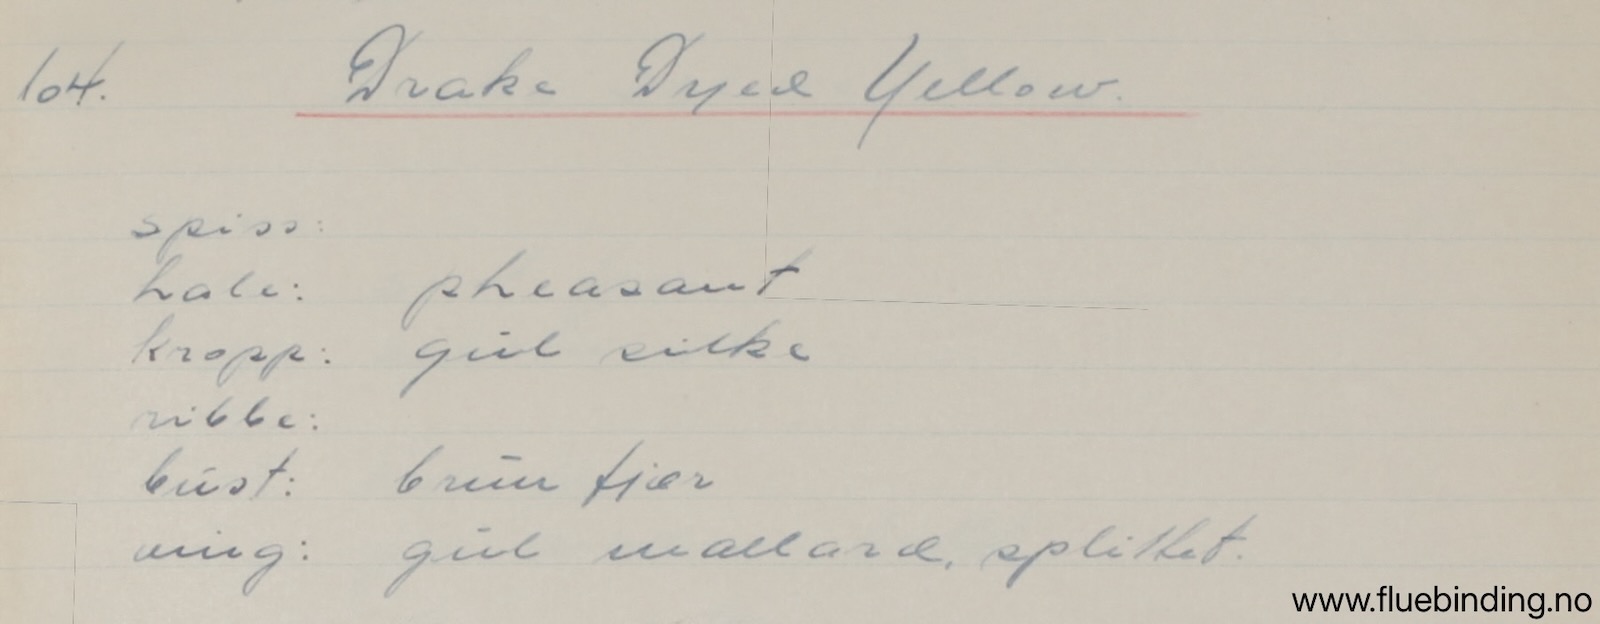 104. Drake Dyed Yellow.
spiss:
hale: pheasant
kropp: gul silke
ribbe:
bust: brun fjær
ving: gul mallard, splittet.
www.fluebinding.no